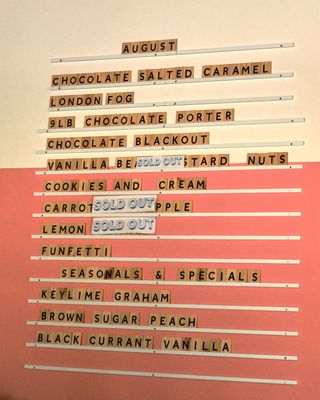 AUGUST
CHOCOLATE SALTED CARAMEL
LONDON FOG
9LB CHOCOLATE PORTER
CHOCOLATE BLACKOUT
VANILLA SOLD OUT NUTS
COOKIES AND CREAM
CARROT SOLD OUT
LEMON SOLD OUT
FUNFETTI
SEASONALS & SPECIALS
KEYLIME GRAHAM
BROWN SUGAR PEACH
BLACK CURRANT VANILLA